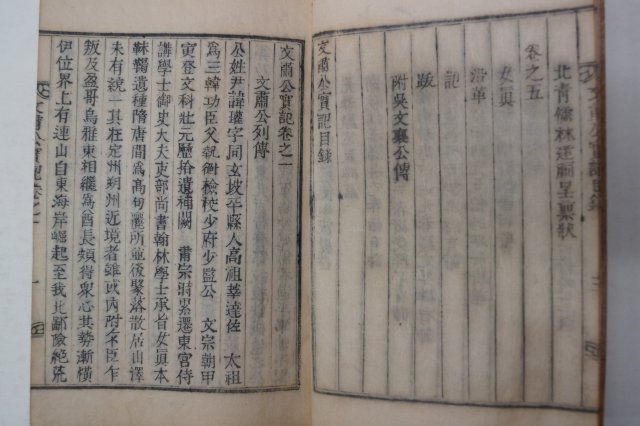 文肅公實記目錄
北青儒林道嗣呈禀狀
卷之五
女眞
沿革
記
跋
附吳文襄公傳
文肅公實記目錄
文肅公實記卷之一
文肅公列傳
公姓尹諱瓘字同玄坡平縣人高祖莘達佐 太祖
爲三韓功臣父執衡檢校少府少監公 文宗朝甲
寅登文科壯元歷拾遺補闕 肅宗時累遷東宮侍
講學士御史大夫吏部尙書翰林學士承旨女眞本
靺鞨遺種隋唐間爲高句麗所並後聚落散居山澤
未有統一其在定州朔州近境者雖或內附乍臣乍
叛及盈哥烏雅束相繼爲酋長頗得衆心其勢漸橫
伊位界上有連山自東海岸崛起至我北鄙險絶荒
文肅公實記卷之一
一